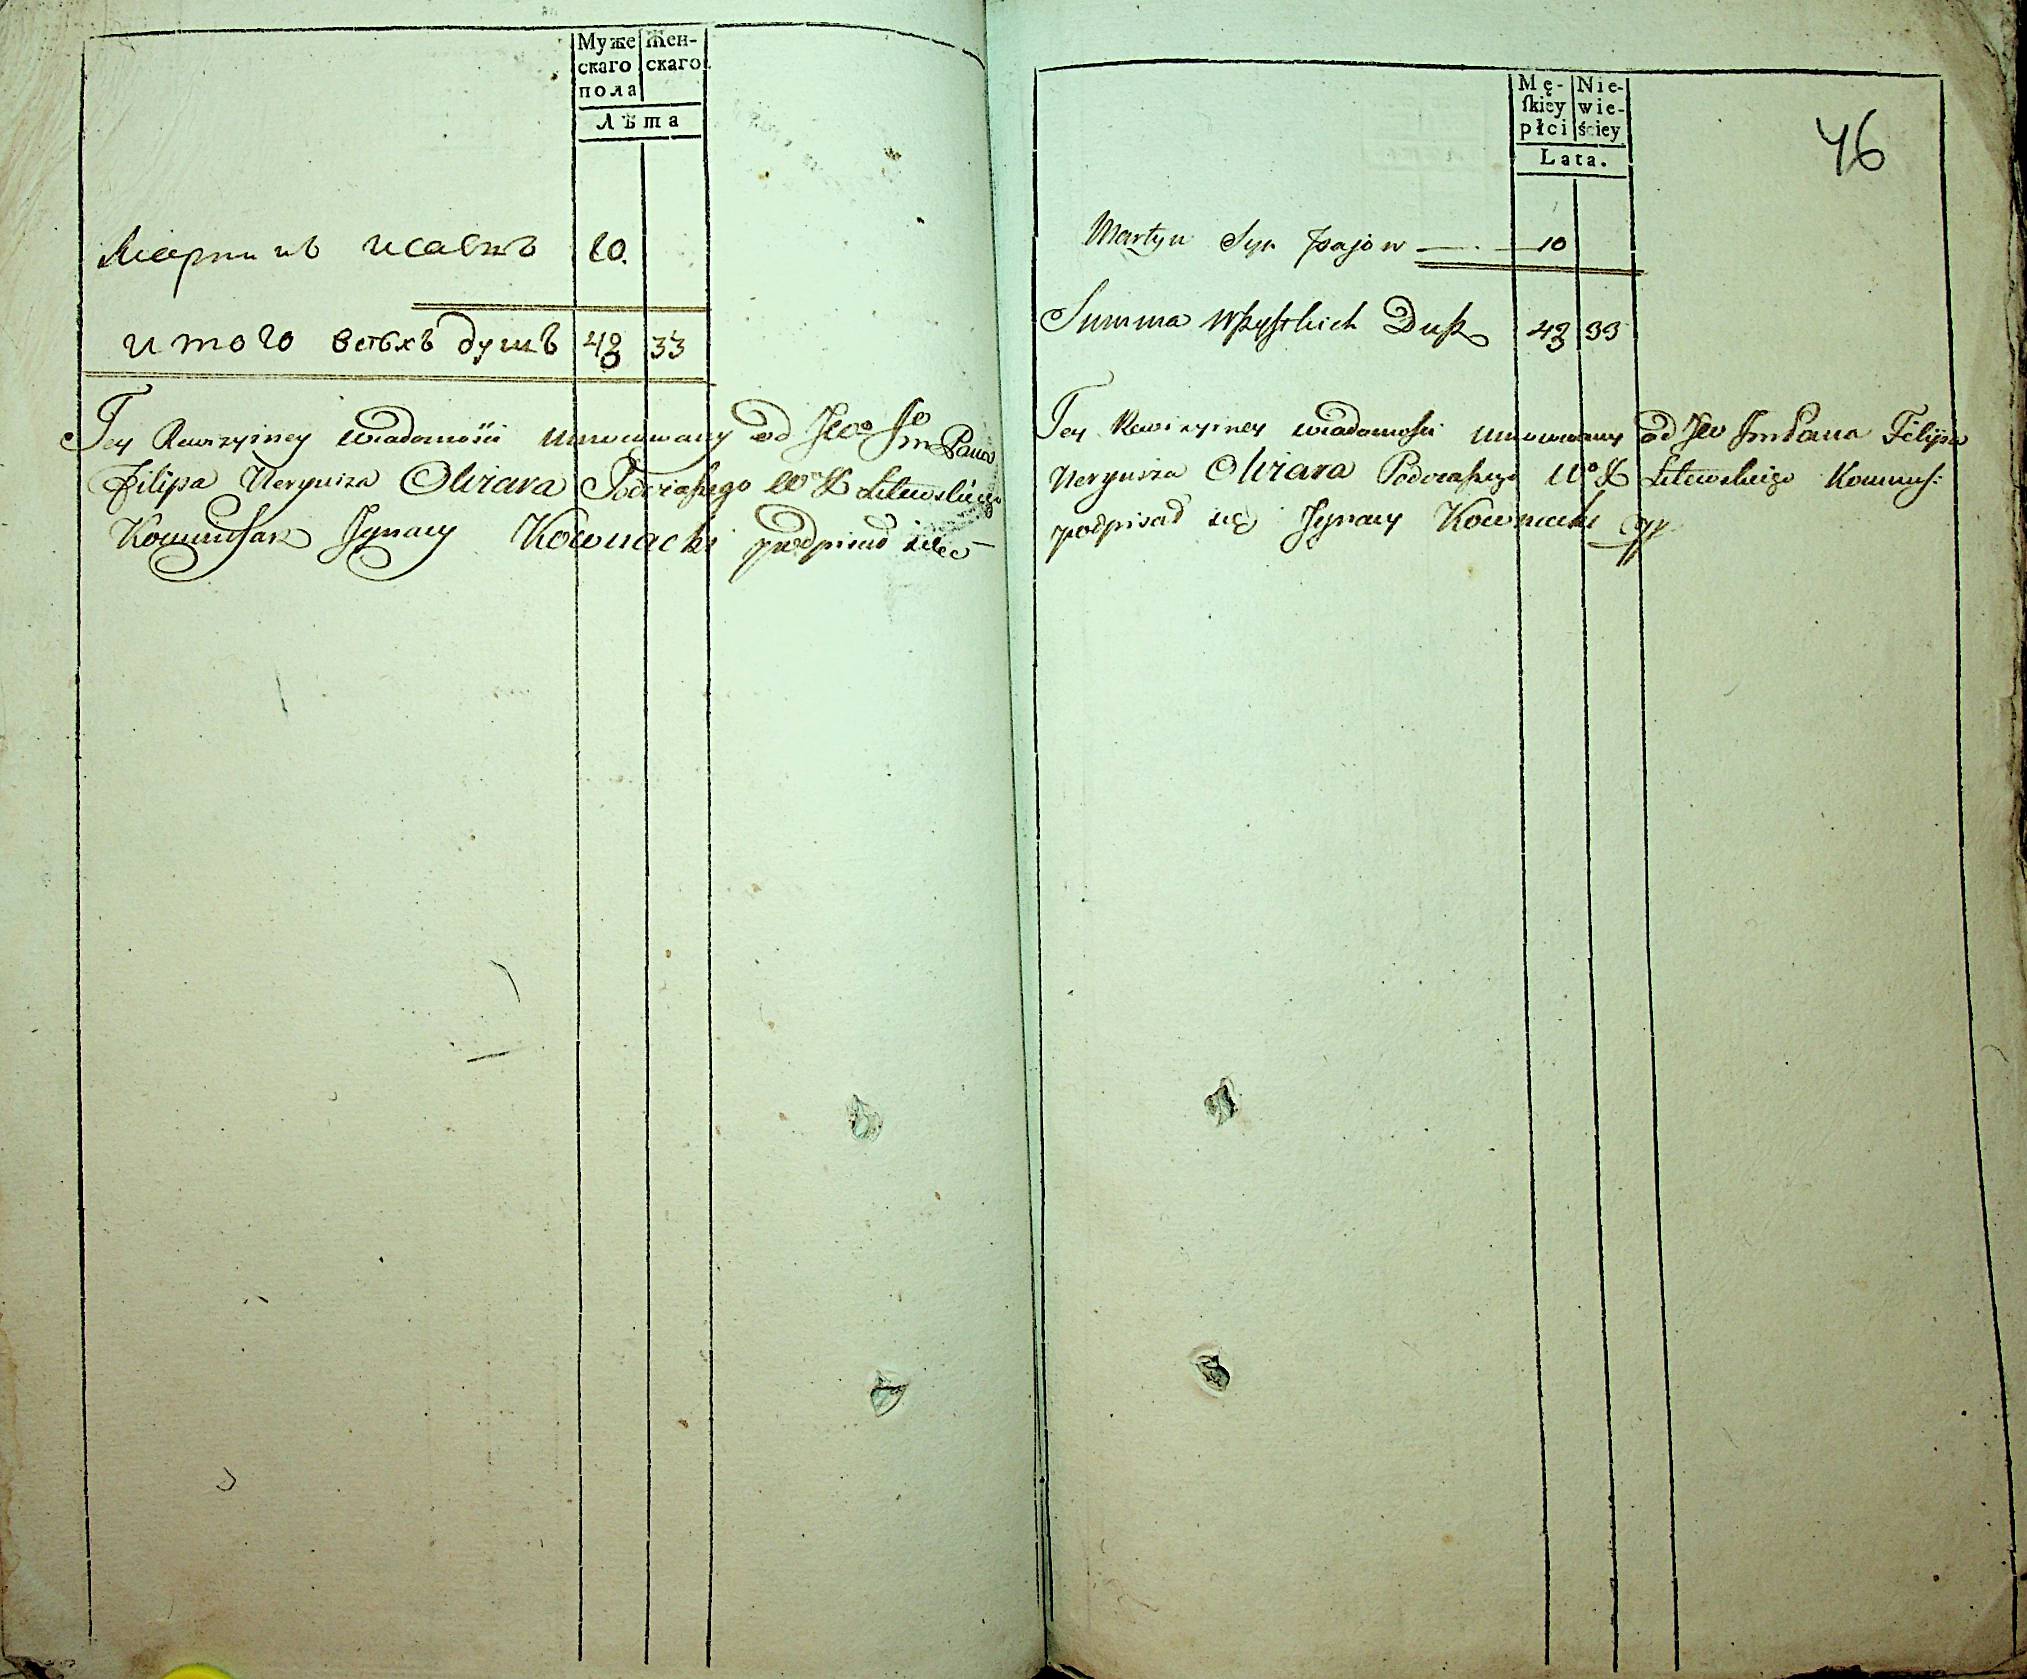 Муже Жен-
скаго скаго
пола
Лѣта
Мартинъ исаевъ 10.
итого всѣхъ душъ 43 33
Tey Rewizyiney wiadomości umocowany od Jeo Jm Pana
Filipa Neryusza Olizara Podczaszego W X Litewskiego
Kommissarz Jgnacy Kownacki podpisał
Mę- Nie-
ſkiey wie-
płci ściey
Lata.
46
Martyn Syn Jsajów 10
Summa wszystkich Dusz 43 33
Tey Rewizyiney wiadomości umocowany od Jeo Jm Pana Filipa
Neryusza Olizara Podczaszego Wo X Litewskiego Kommis:
podpisał się Jgnacy Kownacki